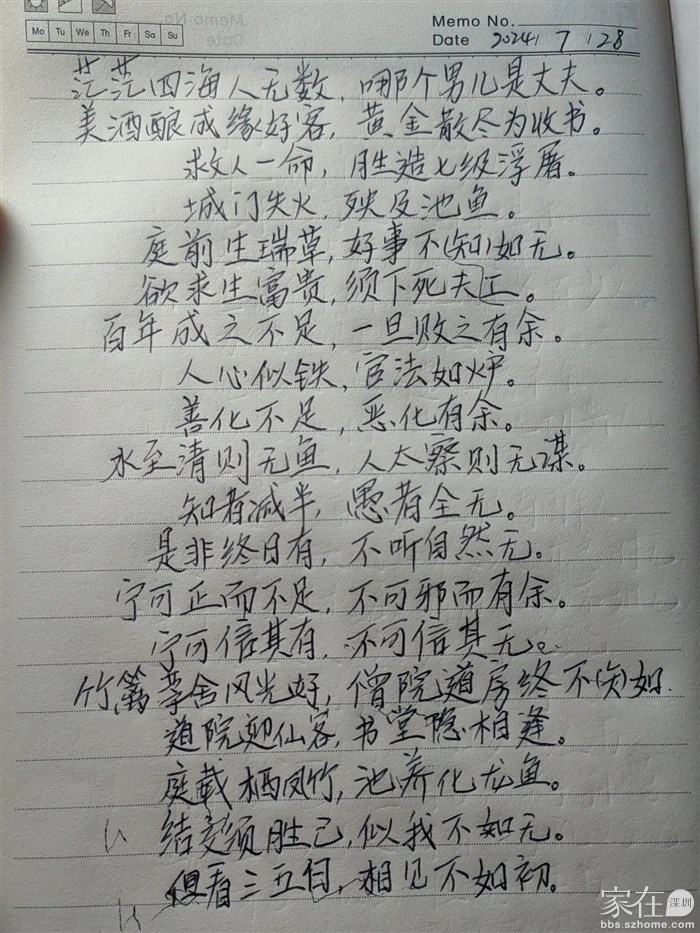 Memo No.
Mo Tu We Th Fr Sa Su
Date 2024 7 28
茫茫四海人无数，哪个男儿是丈夫。
美酒酿成缘好客，黄金散尽为收书。
救人一命，胜造七级浮屠。
城门失火，殃及池鱼。
庭前生瑞草，好事不(知)如无。
欲求生富贵，须下死夫工。
百年成之不足，一旦败之有余。
人心似铁，官法如炉。
善化不足，恶化有余。
水至清则无鱼，人太察则无谋。
知者减半，愚者全无。
是非终日有，不听自然无。
宁可正而不足，不可邪而有余。
宁可信其有，不可信其无。
竹篱茅舍风光好，僧院道房终不如.
道院迎仙客，书堂隐相逢。
庭栽栖凤竹，池养化龙鱼。
结交须胜己，似我不如无。
但看三五日，相见不如初。
家在深圳
bbs.szhome.com